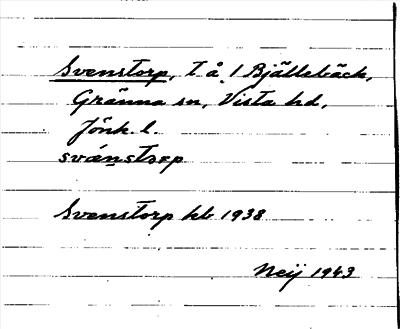 Svenstorp, t. å. 1 Bjällebäck,
Gränna sn, Vista hd,
Jönk. l.
svänstorp
Svenstorp kb 1938
Neij 1943